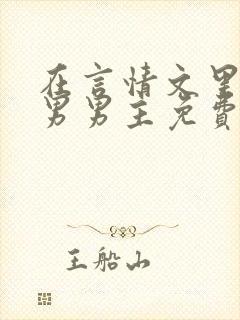 在言情文里
男男主免费
王船山